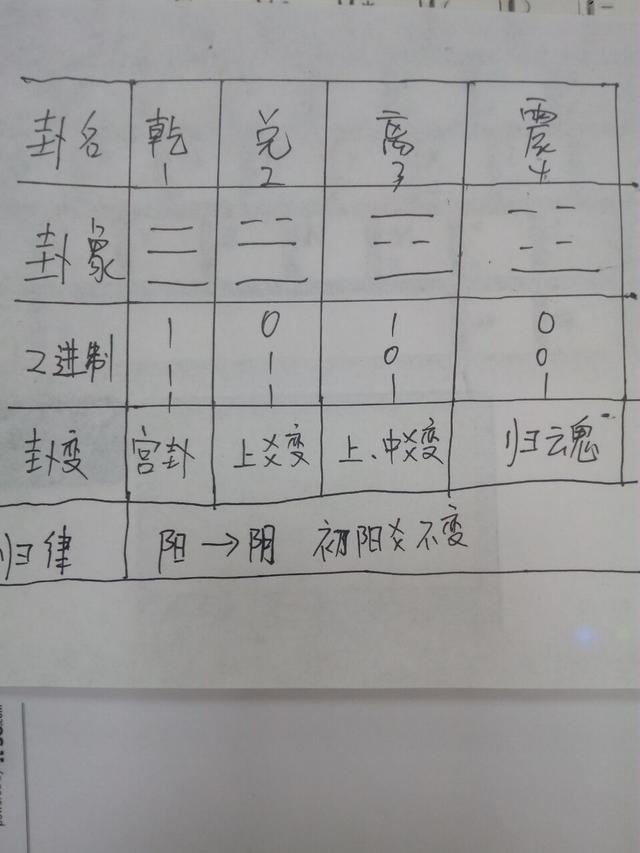 卦名 乾 兑 离 震
1 2 3 4
卦象
1 0 1 0
2进制 1 1 0 0
1 1 1 1
卦变 宫卦 上爻变 上、中爻变 归魂
归律 阳→阴 初阳爻不变
powered by